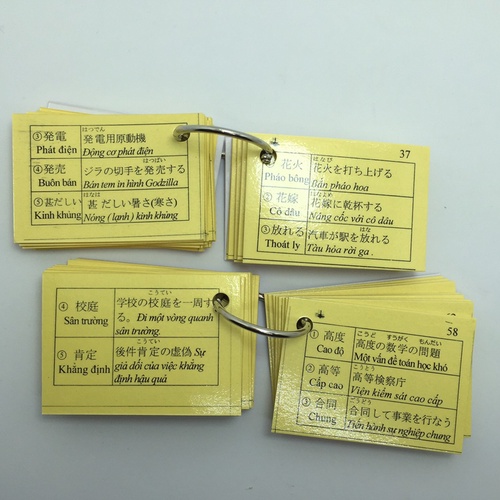 ③発電
Phát điện
はつでん
発電用原動機
Động cơ phát điện
④発売
Buôn bán
はつばい
ジラの切手を発売する
Bán tem in hình Godzilla
⑤甚だしい
Kinh khủng
はなは
甚だしい暑さ(寒さ)
Nóng (lạnh) kinh khủng
37
花火
Pháo bông
はなび
花火を打ち上げる
Bắn pháo hoa
②花嫁
Cô dâu
はなよめ
花嫁に乾杯する
Nâng cốc với cô dâu
③放れる
Thoát ly
はな
汽車が駅を放れる
Tàu hỏa rời ga .
④校庭
Sân trường
こうてい
学校の校庭を一周す
る。Đi một vòng quanh
sân trường.
⑤肯定
Khẳng định
こうてい
後件肯定の虚偽 Sự
giả dối của việc khẳng
định hậu quả
58
①高度
Cao độ
こうど すうがく もんだい
高度の数学の問題
Một vấn đề toán học khó
②高等
Cấp cao
こうとう
高等検察庁
Viện kiểm sát cao cấp
③合同
Chung
ごうどう
合同して事業を行なう
Tiến hành sự nghiệp chung